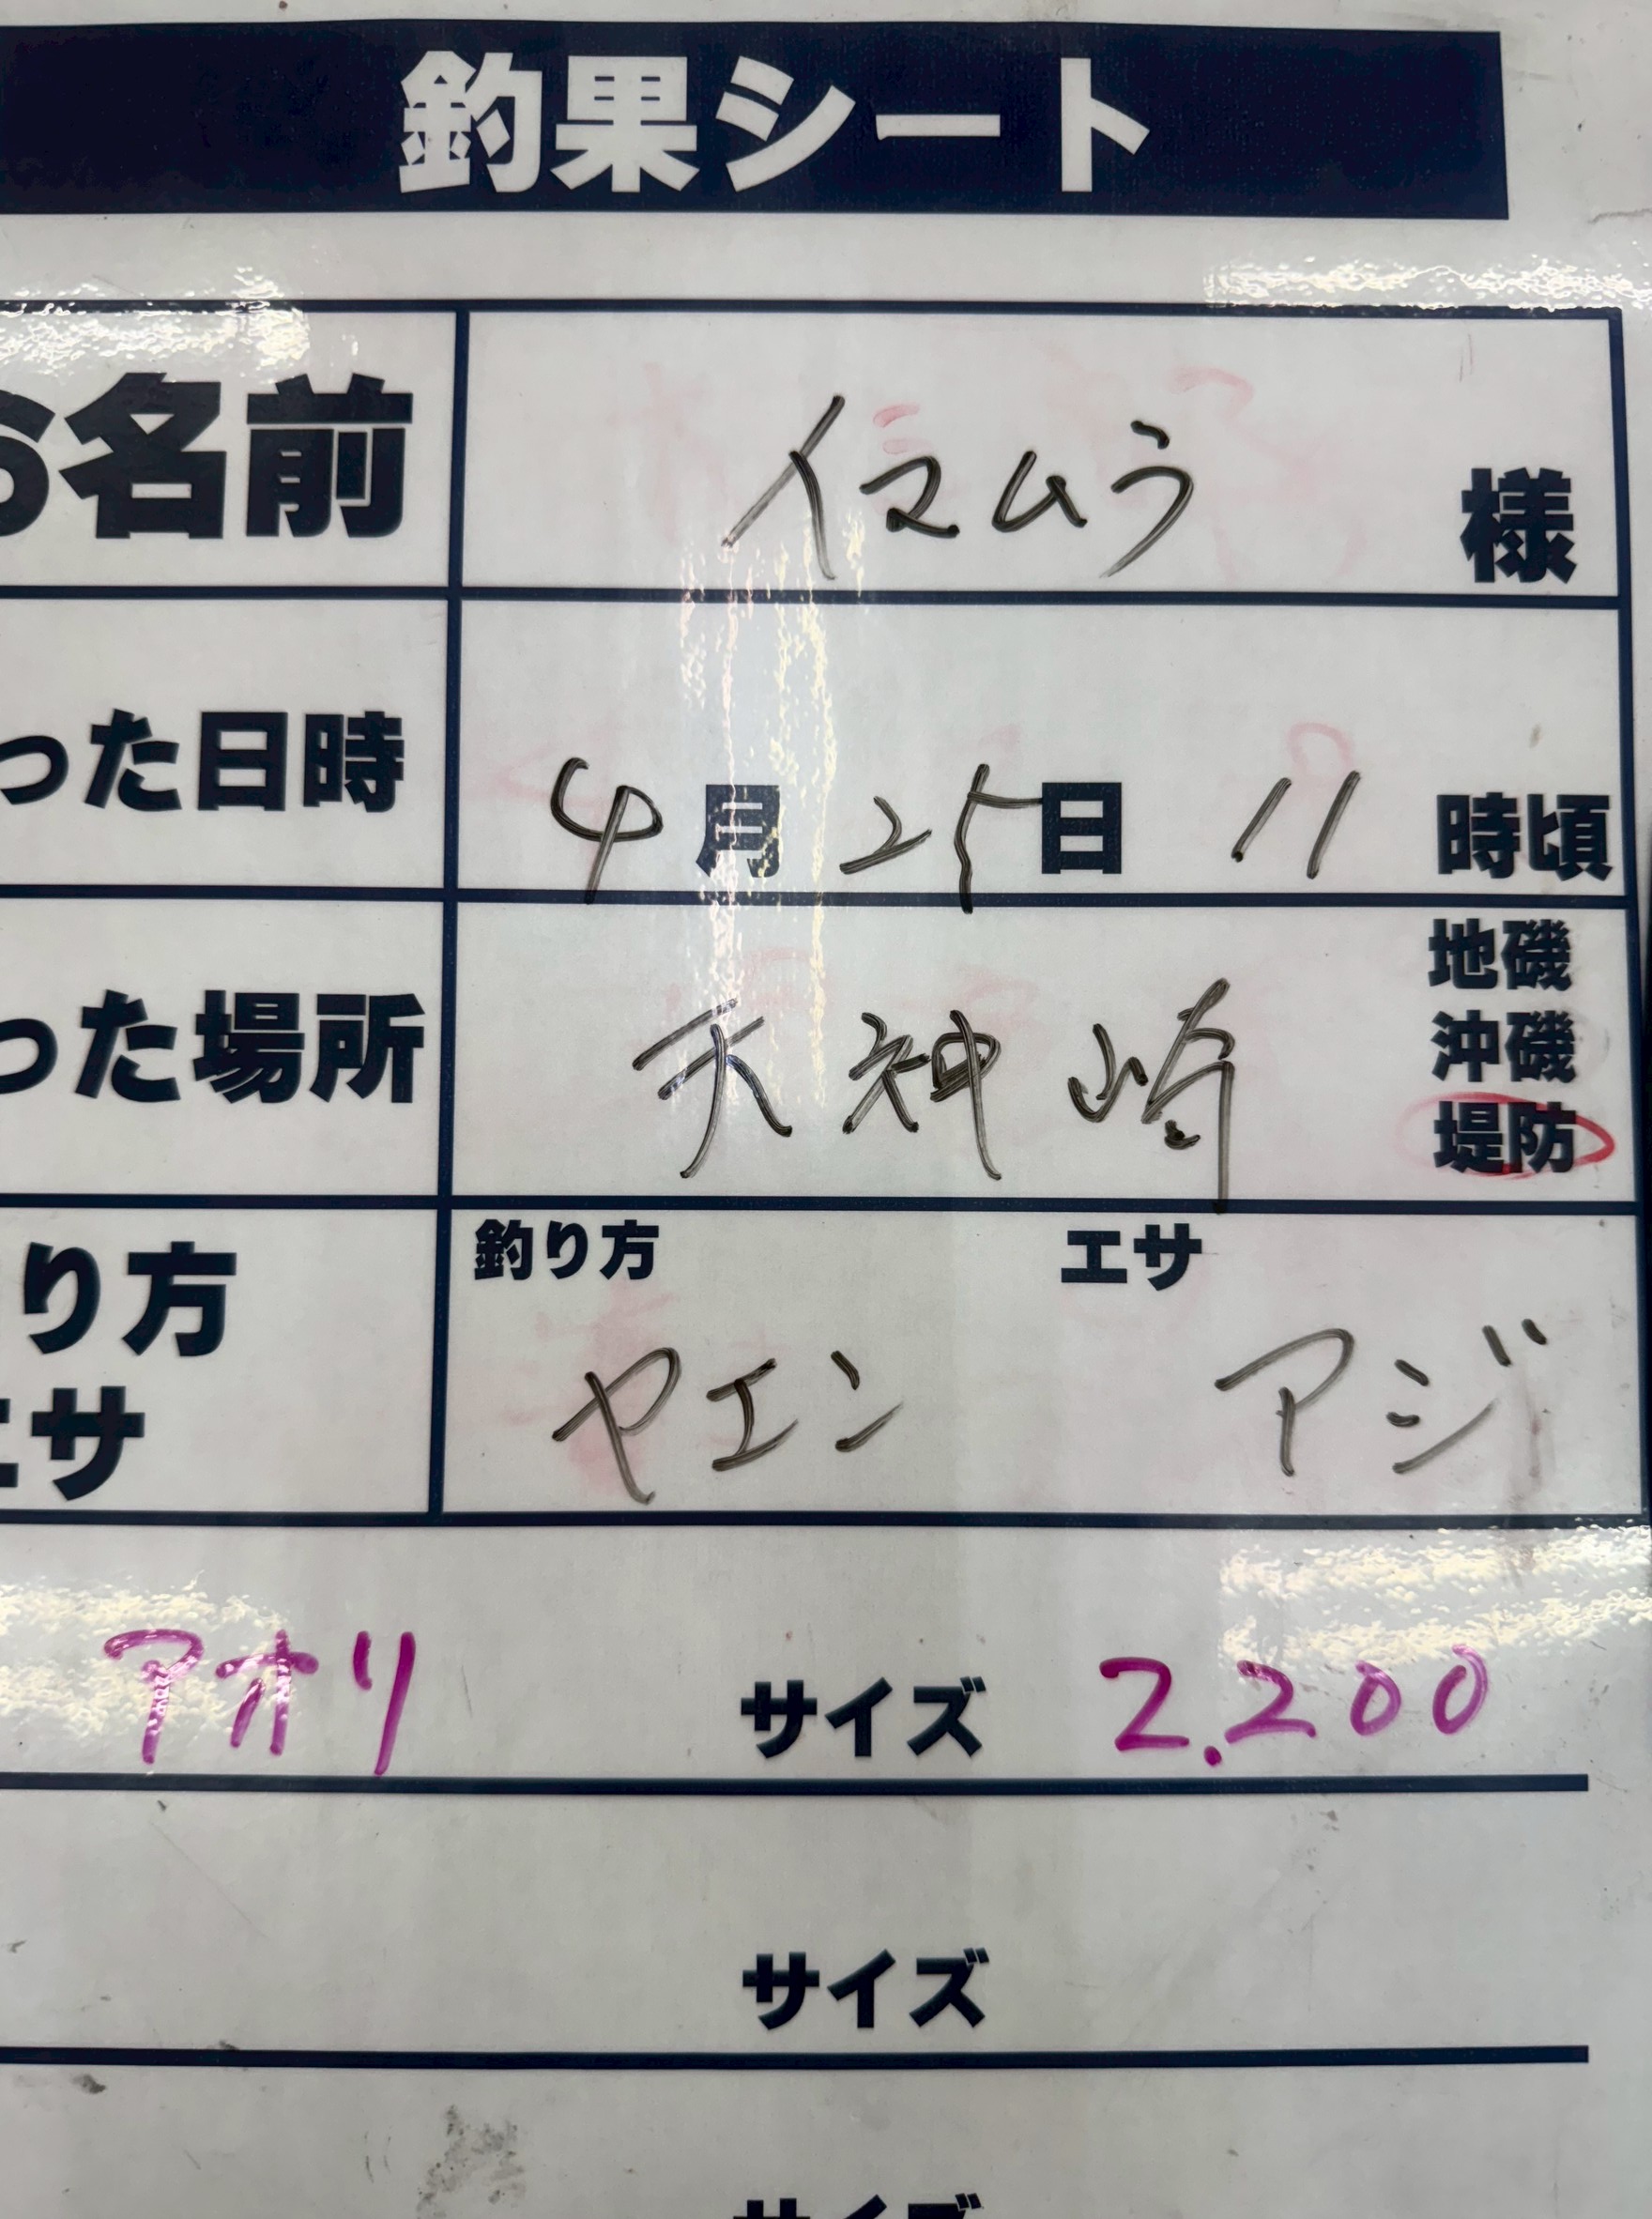 釣果シート
お名前 様
った日時 4月25日 11時頃
った場所 天神崎 地磯
沖磯
堤防
り方 釣り方 エサ
エサ ヤエン アジ
アオリ サイズ 2.200
サイズ
サイズ